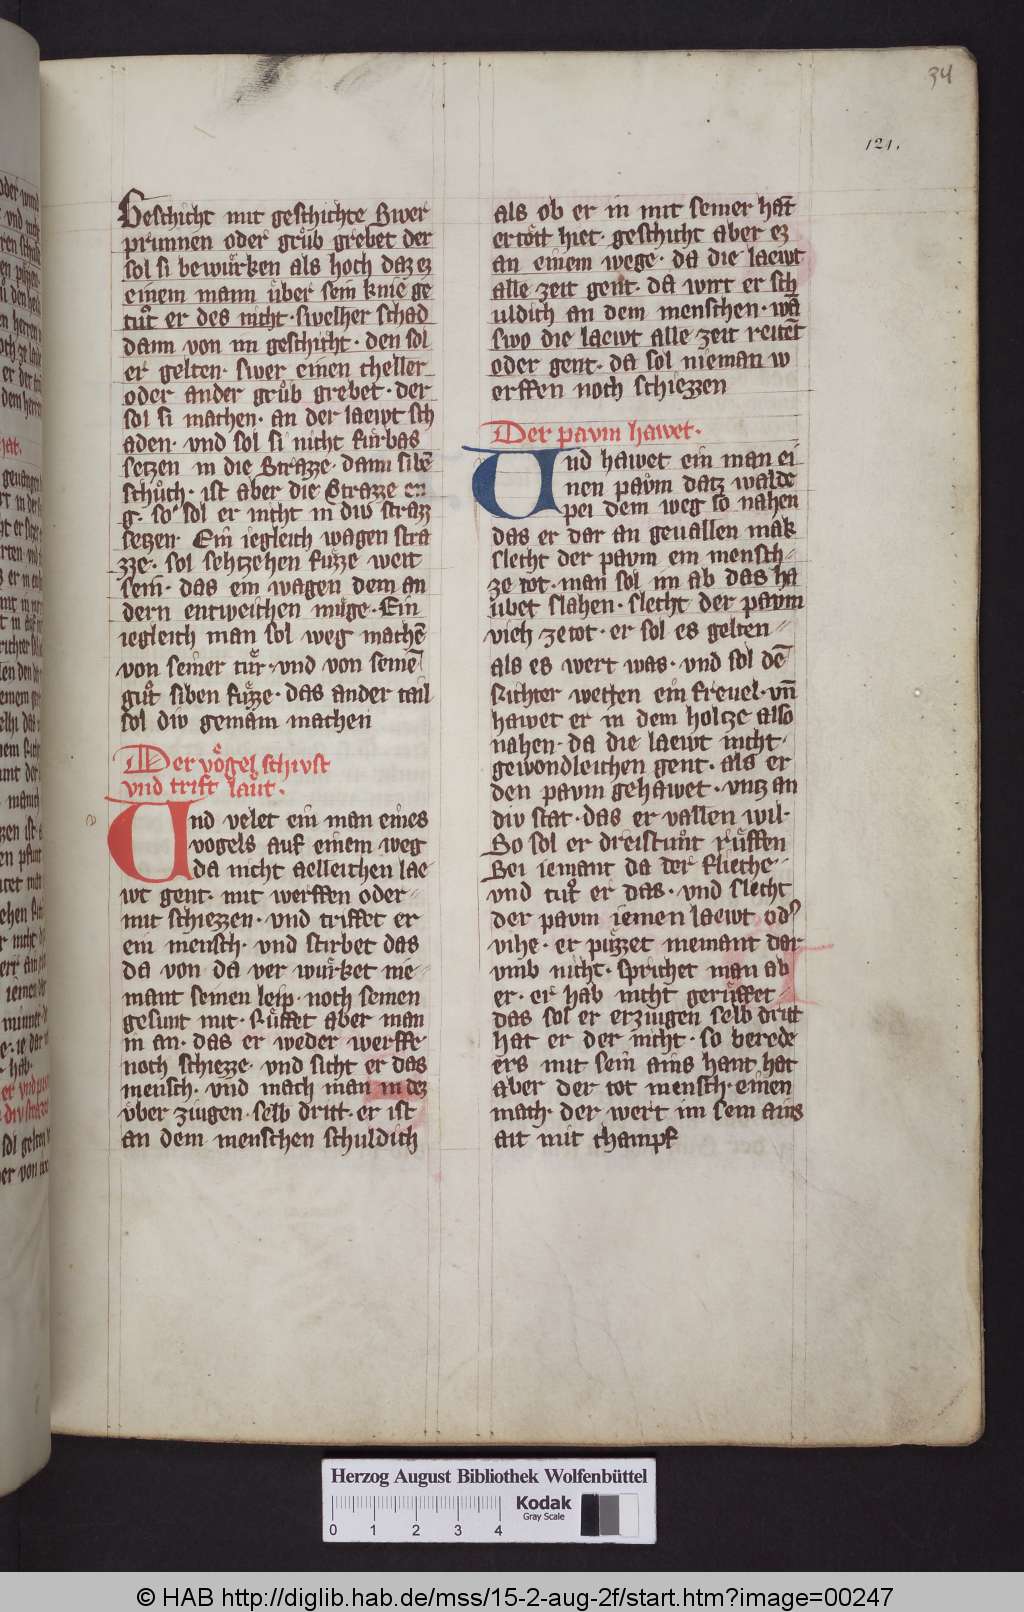 34
121.
Geschicht mit geschichte Swer
prunnen oder grůb grebet der
sol si bewůrken als hoch daz ez
einem mann ůber sein knie ge
tůt er des nicht · swelher schad
dann von im geschicht · den sol
er gelten · swer einen cheller
oder ander grůb grebet · der
sol si machen · an der laewt sch
aden · vnd sol si nicht fůrbas
setzen in die Strazze · dann sibē
schůch · ist aber die Strazze en
g · so sol er nicht in diw strazz
setzen · Ein iegleich wagen stra
zze · sol sehtzehen fůzze weit
sein · das ein wagen dem an
dern entweichen můge · Ein
iegleich man sol weg machē
von seiner tůr · vnd von seinē
gůt siben fůzze · das ander tail
sol diw gemain machen
Der vögel schivst
vnd trift laůt ·
Und velet ein man eines
vogels auf einem weg
da nicht aelleichen lae
wt gent · mit werffen oder
mit schiezzen · vnd triffet er
ein mensch · vnd stirbet das
da von da ver wůrket nie
mant seinen leip · noch seinen
gesunt mit · Růffet aber man
in an · das er weder werffe
noch schiezze · vnd sicht er das
mensch · vnd mach man in dez
vber ziugen · selb dritt · er ist
an dem menschen schuldich
als ob er in mit seiner hāt
ertött hiet · geschicht aber ez
an einem wege · da die laewt
alle zeit gent · da wirt er sch
uldich an dem menschen · wā
swo die laewt alle zeit reitēt
oder gent · da sol nieman w
erffen noch schiezzen
Der pavm hawet ·
Und hawet ein man ei
nen pavm datz walde
pei dem weg so nahen
das er dar an geuallen mak
slecht der pavm ein mensch
ze tot · man sol im ab das ha
ubet slahen · slecht der pavm
vich ze tot · er sol es gelten
als es wert was · vnd sol dē
Richter wetten ein freuel · vn̄
hawet er in dem holtze also
nahen · da die laewt nicht ·
gewondleichen gent · als er
den pavm gehawet · vntz an
div stat · das er vallen wil ·
So sol er dreistunt růffen
Bei iemant da der fliehe
vnd tůt er das · vnd slecht
der pavm iemen laewt od̾
vihe · er půzzet niemant dar
vmb nicht · sprichet man ab
er · er hab nicht gerůffet
das sol er erziugen selb dritt
hat er der nicht · so berede
ers mit sein ains hant hat
aber der tot mensch · einen
mach · der wert im sein ains
ait mit champf
Herzog August Bibliothek Wolfenbüttel
0 1 2 3 4
Kodak
Gray Scale
© HAB http://diglib.hab.de/mss/15-2-aug-2f/start.htm?image=00247